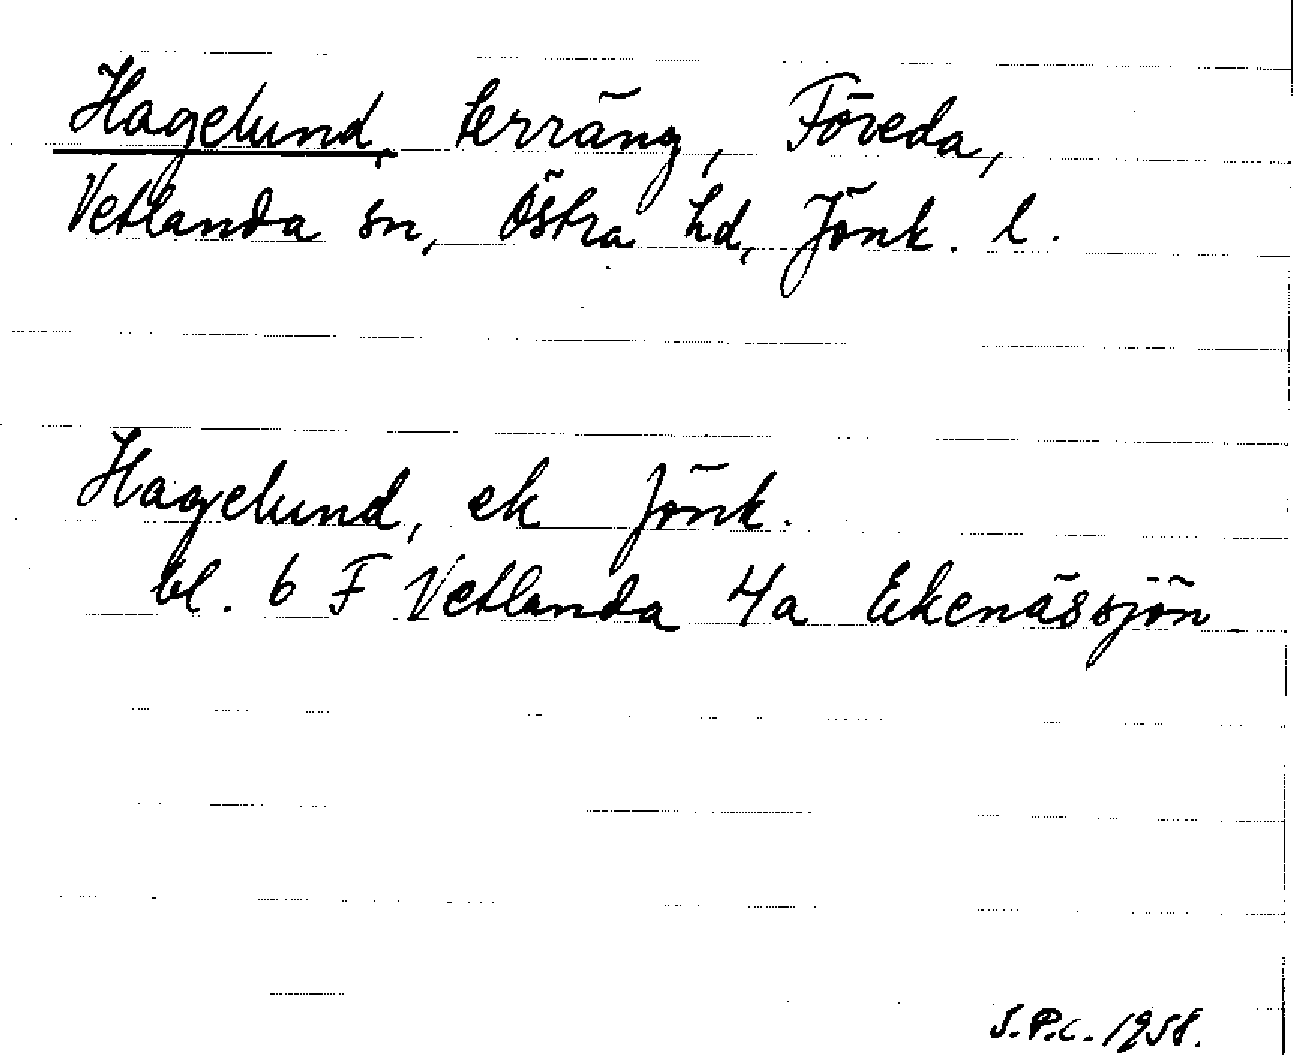 Hagelund, terräng, Föveda,
Vetlanda sn, Östra hd, Jönk. l.
Hagelund, ek Jönk.
bl. 6 F Vetlanda 4a Ekenässjön
S.P.C. 1958.